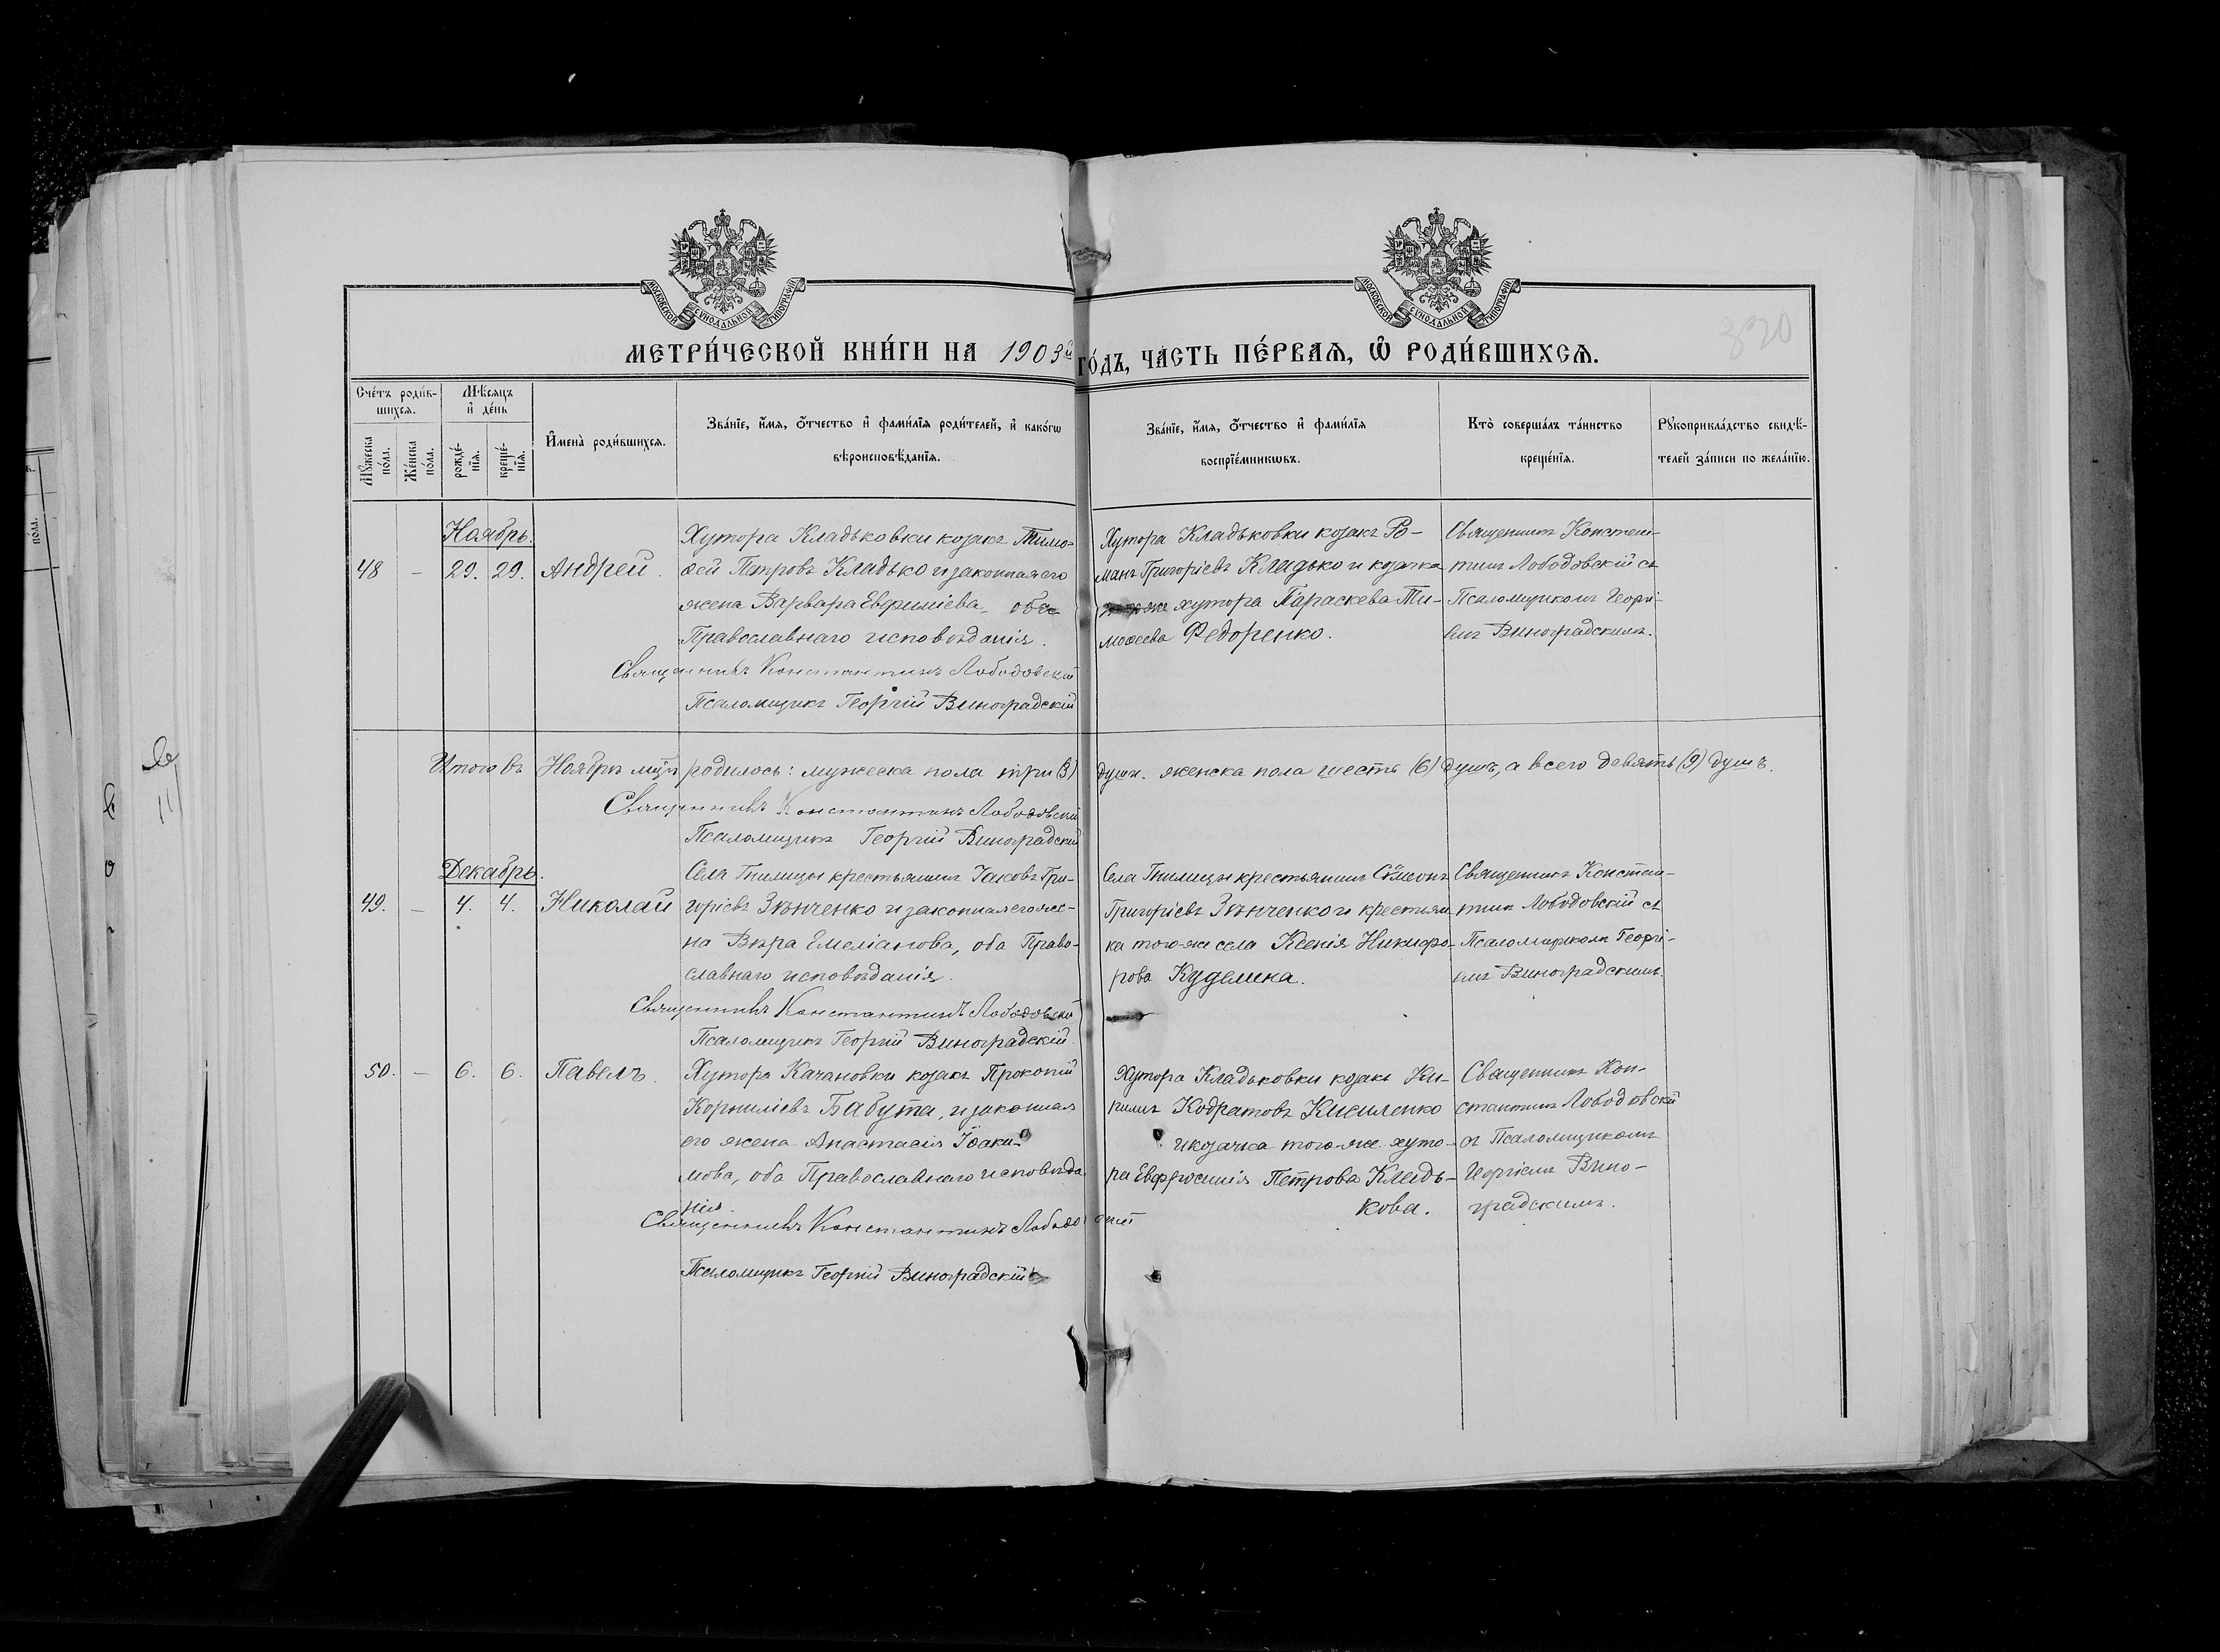 МОСКОВСКОЙ СѴНОДАЛЬНОЙ ТИПОГРАФІИ
МОСКОВСКОЙ СѴНОДАЛЬНОЙ ТИПОГРАФІИ
320
МЕТРИ́ЧЕСКОЙ КНИ́ГИ НА 1903й ГО́ДЪ, ЧА́СТЬ ПЕ́РВАѦ, Ѡ РОДИ́ВШИХСѦ.
Сче́тъ роди́в-
шихсѧ.
Мѣ́сѧцъ
и҆ де́нь
Мꙋ́жеска
по́ла.
Же́нска
по́ла.
рожде́-
нїѧ.
креще́-
нїѧ.
И҆мена̀ роди́вшихсѧ.
Зва́нїе, и҆́мѧ, ѻ҆́тчество и҆ фами́лїѧ роди́телей, и҆ како́гѡ
вѣроисповѣ́данїѧ.
Зва́нїе, и҆́мѧ, ѻ҆́тчество и҆ фами́лїѧ
воспрїе́мникѡвъ.
Кто̀ соверша́лъ та́инство
креще́нїѧ.
Рꙋкоприкла́дство свидѣ́-
телей за́писи по жела́нїю.
Ноябрь.
48 — 29. 29. Андрей.
Хутора Кладьковки козакъ Тимо-
ѳей Петровъ Кладько и законная его
жена Варвара Евфиміева, оба
Православнаго исповѣданія.
Священникъ Константинъ Лободовскій
Псаломщикъ Георгій Виноградскій
Хутора Кладьковки козакъ Ро-
манъ Григоріевъ Кладько и козачка
хутора Параскева Ти-
моѳеева Федоренко.
Священникъ Констан-
тинъ Лободовскій съ
Псаломщикомъ Георгі-
емъ Виноградскимъ.
Итого въ Ноябрѣ мцѣ родилось: мужеска пола три (3) душъ. женска пола шесть (6) душъ, а всего девять (9) душъ.
Священникъ Константинъ Лободовскій
Псаломщикъ Георгій Виноградскій
Декабрь.
49. — 4. 4. Николай
Села Гнилицы крестьянинъ Іаковъ Гри-
горіевъ Зѣнченко и законная его же-
на Вѣра Емеліанова, оба Право-
славнаго исповѣданія.
Священникъ Константинъ Лободовскій
Псаломщикъ Георгій Виноградскій.
Села Гнилицы крестьянинъ Сѷмеонъ
Григоріевъ Зѣнченко и крестьян
ка того-же села Ксенія Никифо-
рова Куделина.
Священникъ Констан-
тинъ Лободовскій съ
Псаломщикомъ Георгі-
емъ Виноградскимъ.
50. — 6. 6. Павелъ.
Хутора Качановки козакъ Прокопій
Корниліевъ Бабута, и законная
его жена Анастасія Іоаки-
мова, оба Православнаго исповѣда
нія.
Священникъ Константинъ Лободовскій
Псаломщикъ Георгій Виноградскій
Хутора Кладьковки козакъ Ки-
рилъ Кодратовъ Кисиленко
и козачка того-же хуто-
ра Евфросинія Петрова Кладь-
кова.
Священникъ Кон-
стантинъ Лободовскій
съ Псаломщикомъ
Георгіемъ Вино-
градскимъ.